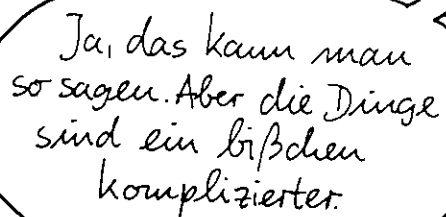 Ja, das kann man
so sagen. Aber die Dinge
sind ein bißchen
komplizierter.